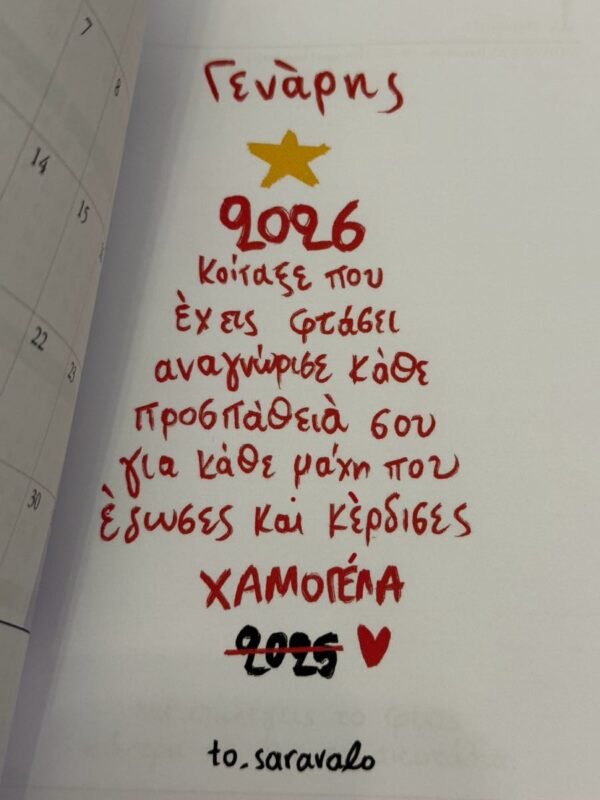 7
8
14
15
22
23
30
Γενάρης
2026
Κοίταξε που
έχεις φτάσει
αναγνώρισε κάθε
προσπάθειά σου
για κάθε μάχη που
έδωσες και κέρδισες
ΧΑΜΟΓΕΛΑ
2025
to_saravalo